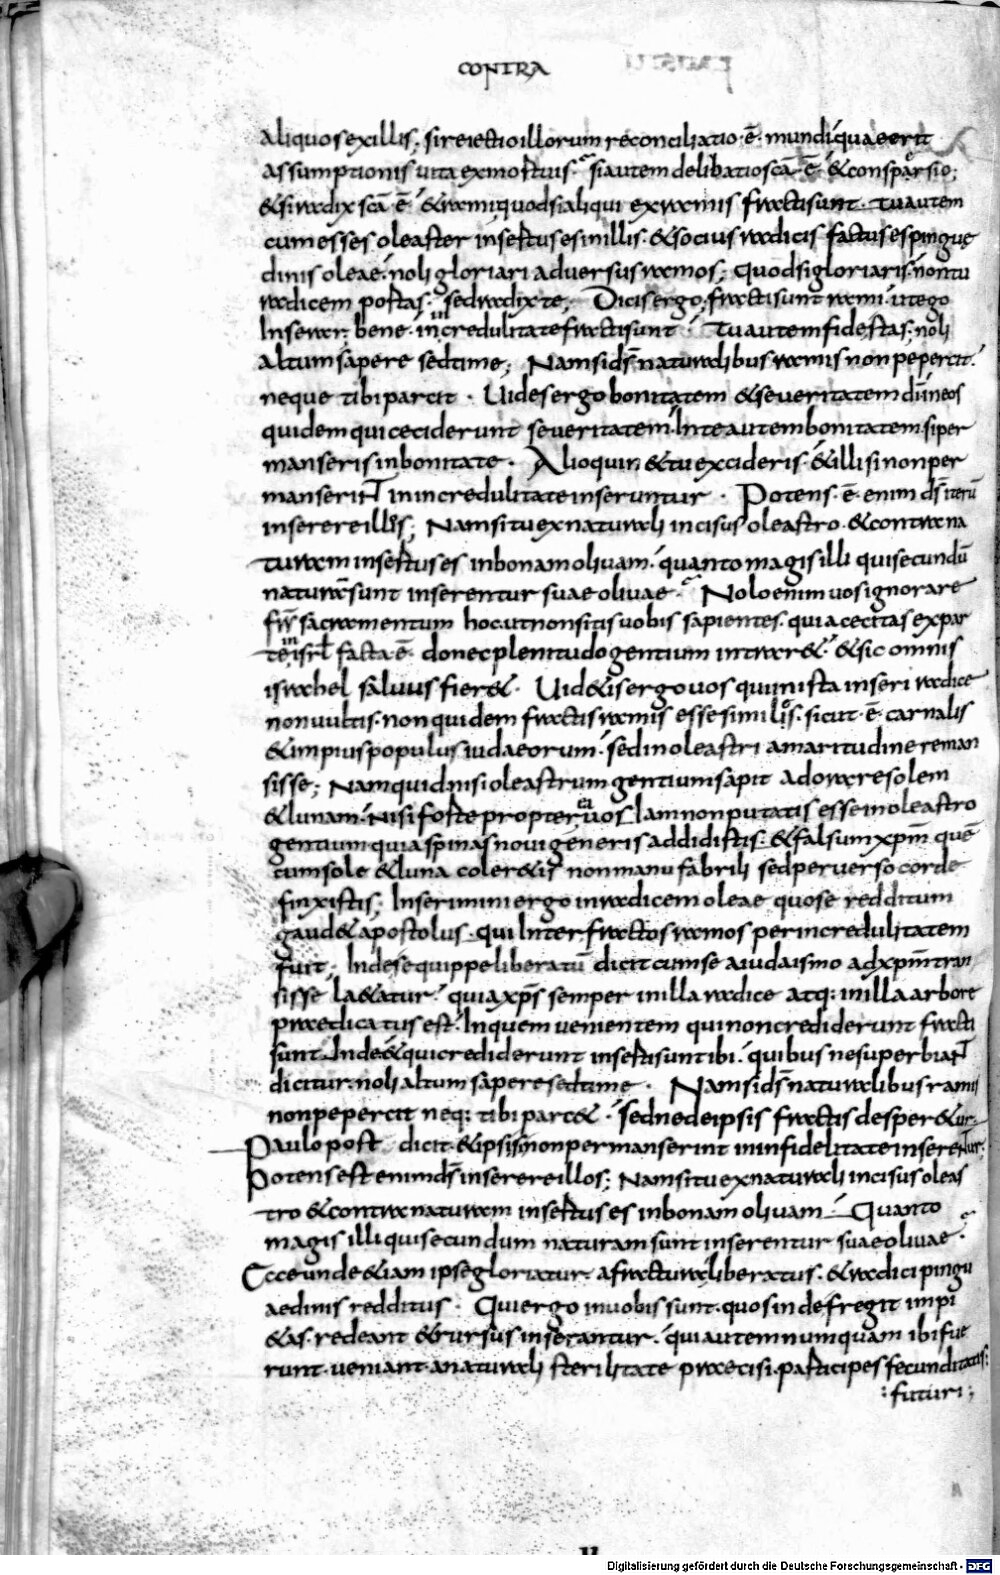 CONTRA
aliquos ex illis; si reiectio illorum reconciliatio ÷ē· mundi quae erit
assumptionis uita ex mortuis· si autem delibatio scā ·ē· & consparsio;
& si radix scā ē & rami quod si aliqui ex ramis fracti sunt· tu autem
cum esses oleaster insertus es in illis· & socius radicis factus es pingue
dinis oleae· noli gloriari aduersus ramos; quod si gloriaris· non tu
radicem portas· sed radix te; Dicis ergo; fracti sunt rami· ut ego
Inserar; bene· in incredulitate fracti sunt· Tu autem fide stas; noli
altum sapere sed time; Nam si ds̄ naturalibus ramis non pepercit·
neque tibi parcit· Uides ergo bonitatem & seueritatem dī· in eos
quidem qui ceciderunt seueritatem· In te autem bonitatem· si per
manseris in bonitate· Alioquin & tu excideris· & illi si non per
manserint in incredulitate inseruntur· Potens ·ē· enim ds̄ iterū
inserere illos; Nam si tu ex naturali incisus oleastro· & contra na
turam insertus es in bonam oliuam· quanto magis illi qui secundū
naturā sunt inserentur suae oliuae· Nolo enim uos ignorare
frr̄ sacramentum hoc· ut non sitis uobis sapientes· quia cecitas ex par
te in isrl̄ facta ·ē· donec plenitudo gentium intrar& · & sic omnis
israhel saluus fier&· Uid&is ergo uos qui in ista inseri radice
non uultis· non quidem fractis ramis esse similes· sicut ·ē· carnalis
& impius populus iudaeorum· sed in oleastri amaritudine reman
sisse; Nam quid nisi oleastrum gentium sapit adorare solem
& lunam· Nisi forte propterea uos Iam non putatis esse in oleastro
gentium quia spinas noui generis addidistis· & falsum xpm̄ quē
cum sole & luna coler&is non manu fabrili sed peruerso corde
finxistis; Inserimini ergo in radicem oleae quo se redditum
gaud& apostolus· qui Inter fractos ramos per incredulitatem
fuit; Inde se quippe liberatū dicit cum se a iudaismo ad xpm̄ tran
sisse la&atur· quia xps̄ semper in illa radice atq: in illa arbore
praedicatus est· In quem uenientem qui non crediderunt fracti
sunt Inde & qui crediderunt inserti sunt ibi· quibus ne superbiant
dicitur· noli altum sapere sed time· Nam si ds̄ naturalibus ramis
non pepercit neq: tibi parc&· sed ne de ipsis fractis desper&ur·
Paulo post dicit· & ipsi si non permanserint in infidelitate inserentur;
Potens est enim ds̄ inserere illos; Nam si tu ex naturali incisus oleas
tro & contra naturam insertus es in bonam oliuam· Quanto
magis illi qui secundum naturam sunt inserentur suae oliuae·
Ecce unde &iam ipse gloriatur· a fractura liberatus· & radici pingu
aedinis redditus· Qui ergo in uobis sunt· quos inde fregit impi
&as· redeant & rursus inserantur· qui autem numquam ibi fue
runt· ueniant· a naturali sterilitate praecisi· participes fecunditatis
: futuri;
Digitalisierung gefördert durch die Deutsche Forschungsgemeinschaft - DFG